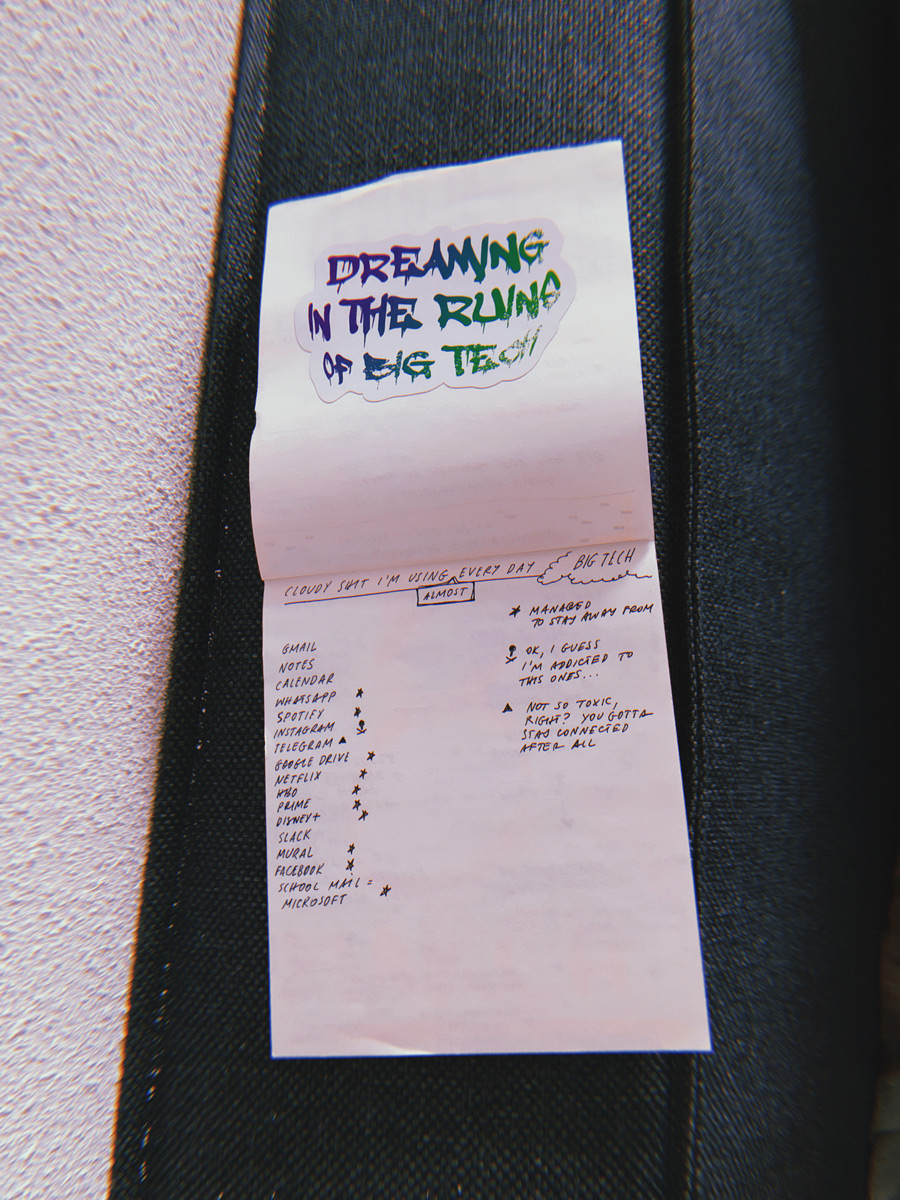 DREAMING
IN THE RUINS
OF BIG TECH
CLOUDY SHIT I'M USING EVERY DAY
ALMOST
BIG TECH
GMAIL
NOTES
CALENDAR
WHATSAPP ★
SPOTIFY ★
INSTAGRAM
TELEGRAM ▲
GOOGLE DRIVE ★
NETFLIX ★
HBO ★
PRIME ★
DISNEY+ ★
SLACK
MURAL ★
FACEBOOK ★
SCHOOL MAIL =
MICROSOFT ★
★ MANAGED
TO STAY AWAY FROM
OK, I GUESS
I'M ADDICTED TO
THIS ONES...
▲ NOT SO TOXIC,
RIGHT? YOU GOTTA
STAY CONNECTED
AFTER ALL